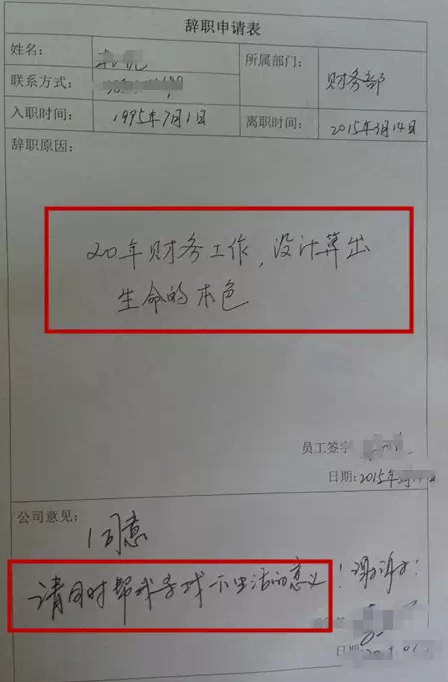 辞职申请表
姓名: 所属部门: 财务部
联系方式:
入职时间: 1995年7月1日 离职时间: 2015年3月14日
辞职原因:
20年财务工作,没计算出
生命的本色
员工签字
日期:2015年
公司意见:
同意
请同时帮我寻找一下生活的意义!谢谢了!